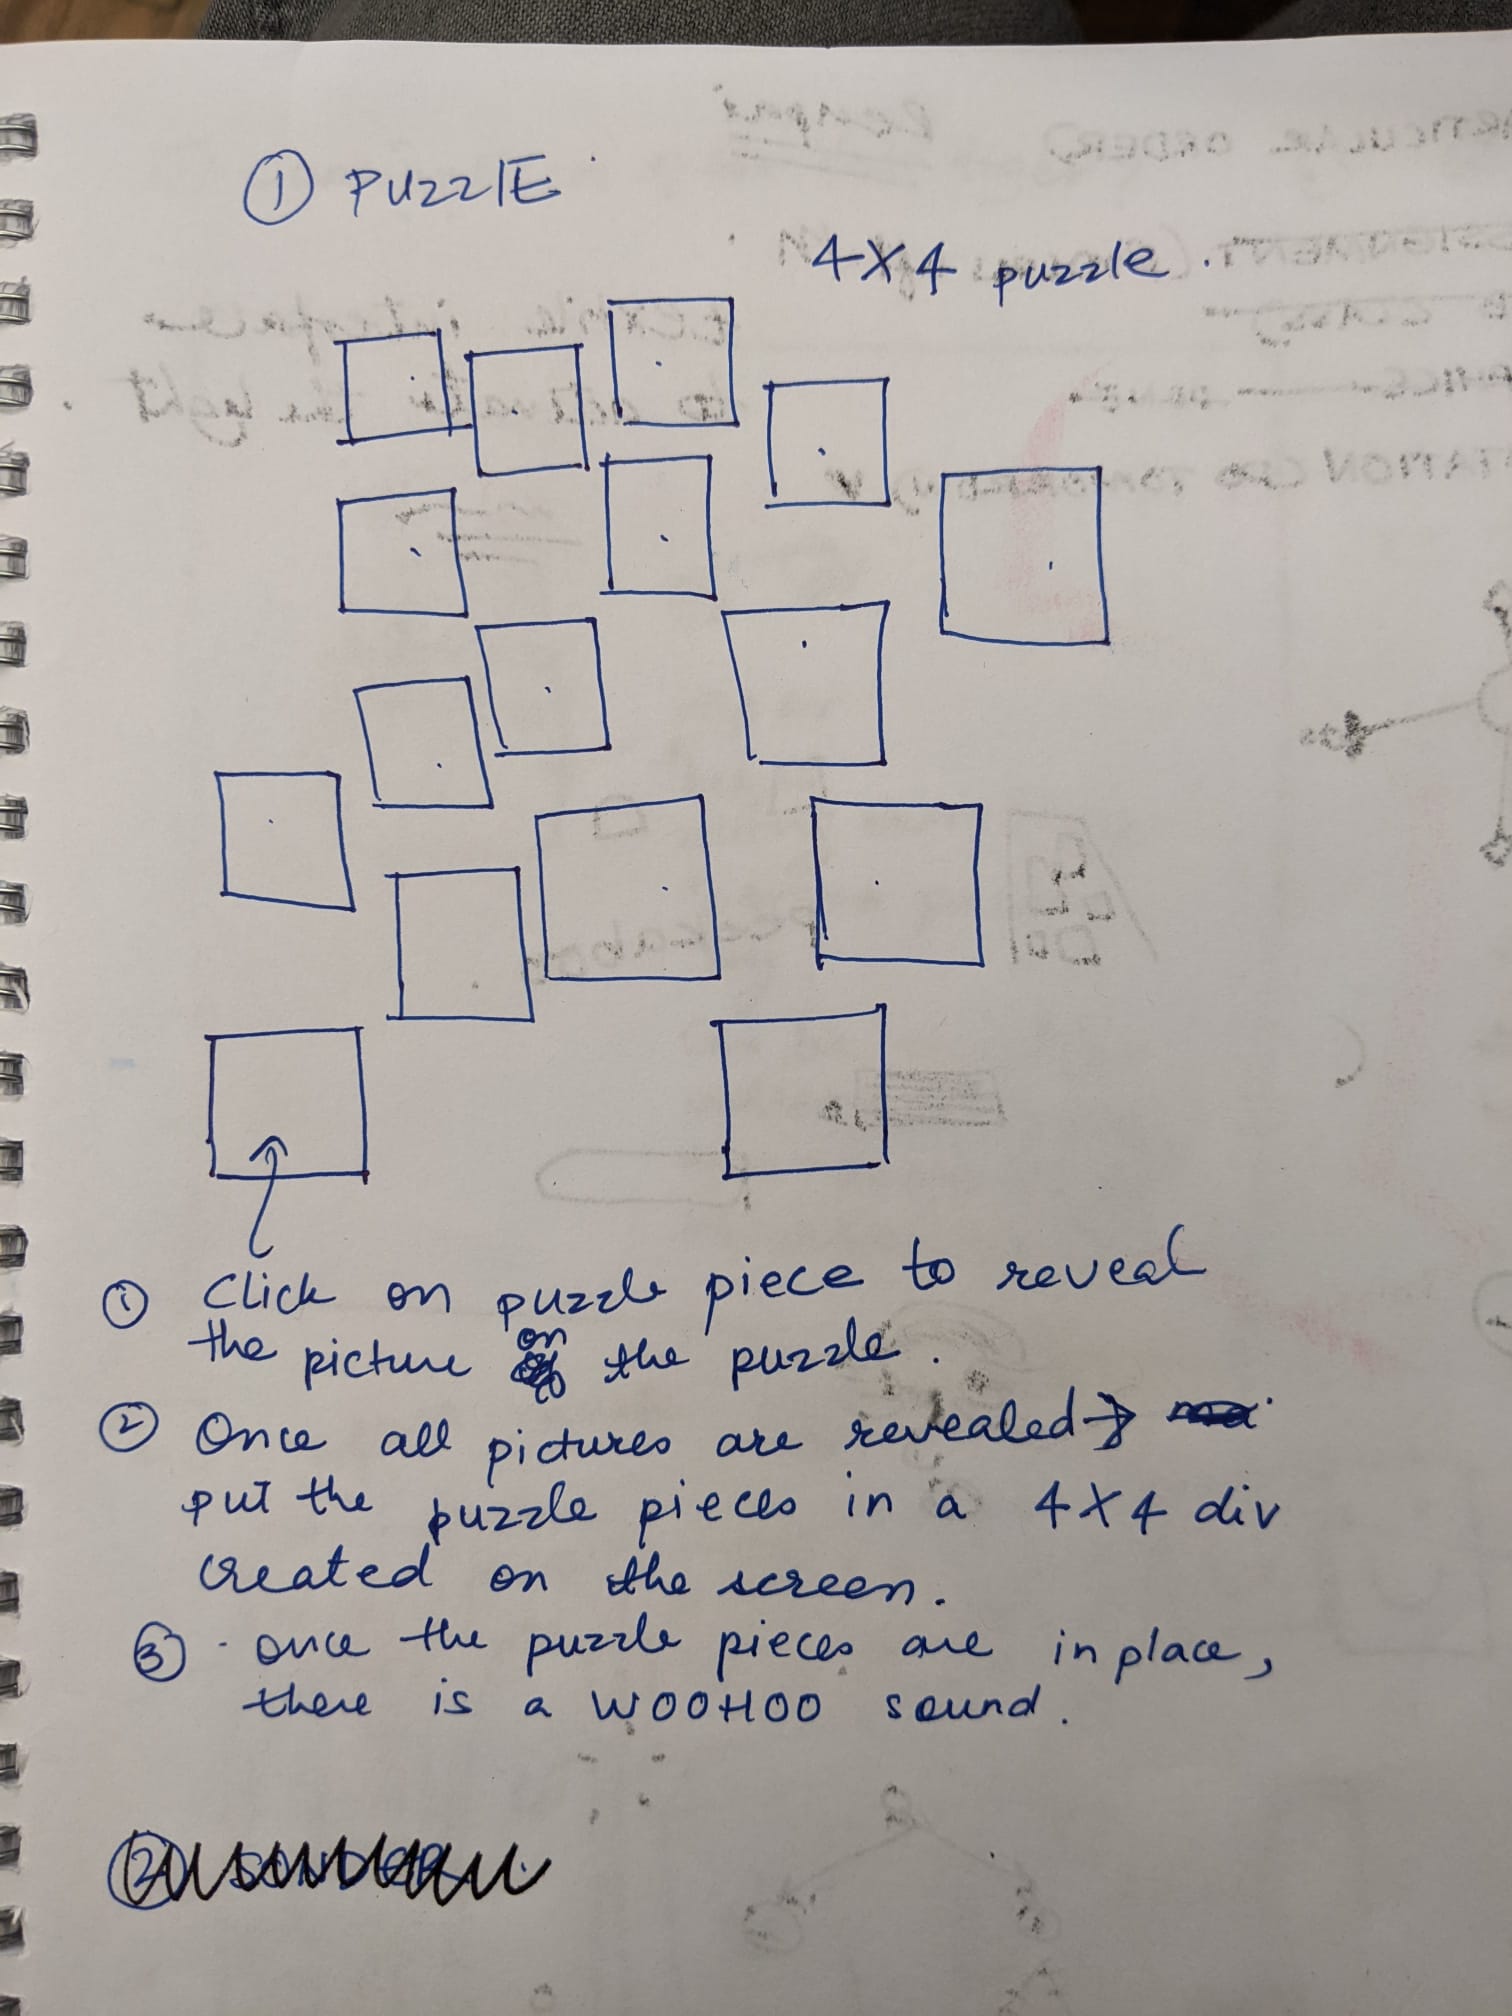 ① PUZZLE
4X4 puzzle.
① Click on puzzle piece to reveal
the picture on the puzzle.
② Once all pictures are revealed →
put the puzzle pieces in a 4X4 div
created on the screen.
③ · once the puzzle pieces are in place,
there is a WOOHOO sound.
②